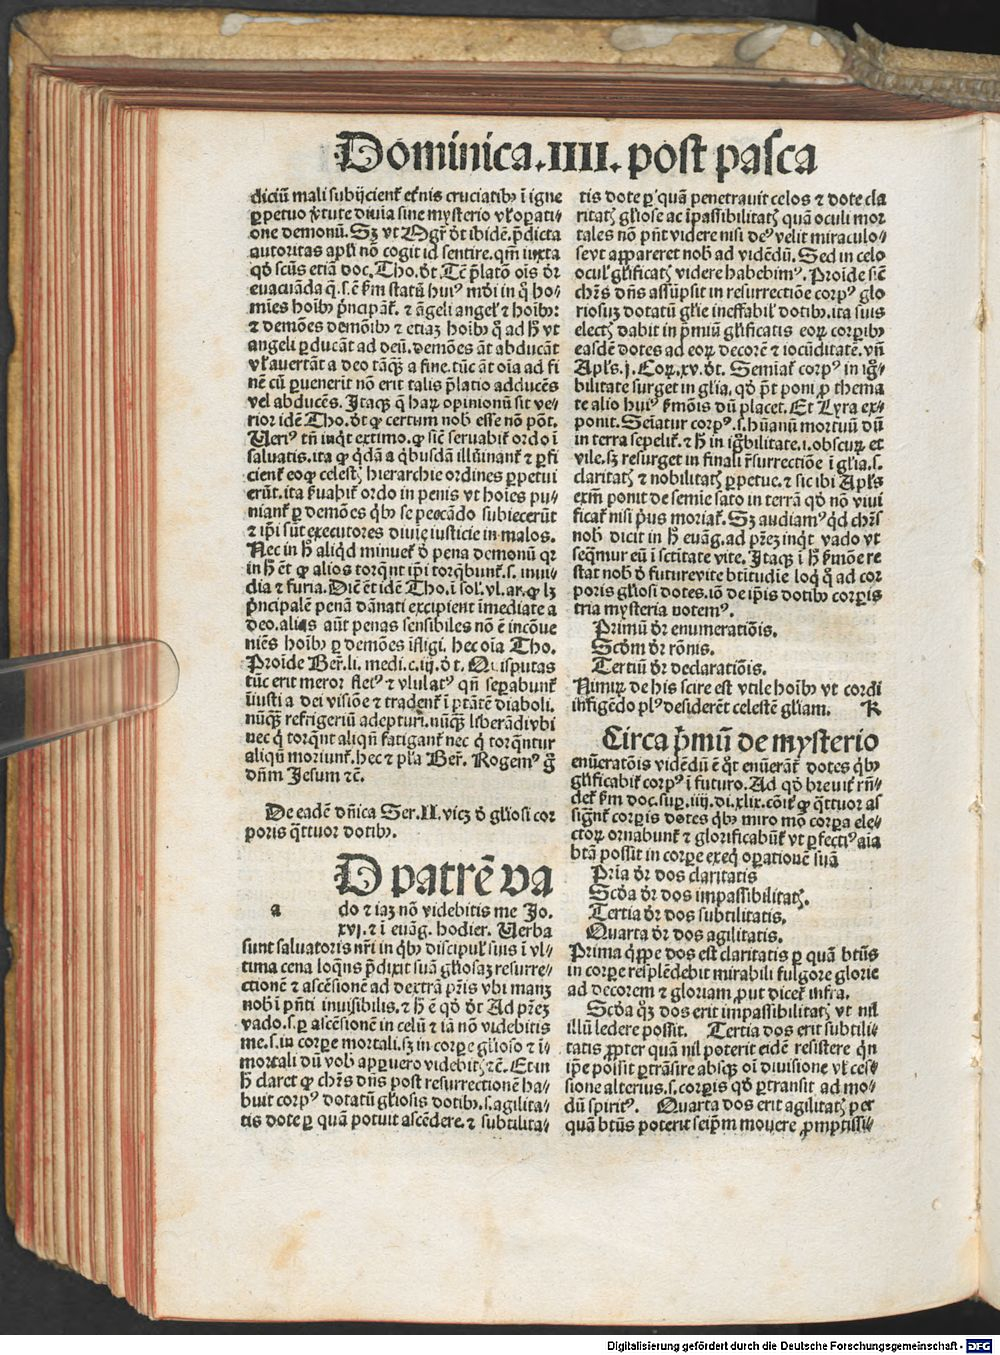 Dominica.IIII.post pasca
diciū mali subijcient̄ et̓nis cruciatibꝫ ī igne
ꝑpetuo v̓tute diuīa sine mysterio vl̓ oꝑati-
one demonū. Sꝫ vt Mgr̄ dt ibidē. p̄dicta
autoritas apl̓i nō cogit id sentire. qm̄ iuxta
qd̓ scūs etiā doc. Tho. d̓t. Tē p̄latō oīs d̓r
euacuāda q̄. s. ē ẜm statū huiꝰ mūdi in q̓ ho-
mīes hoībꝫ p̄ncipāt̄. ⁊ āgeli angel̓ ⁊ hoībꝫ:
⁊ demōes demōibꝫ ⁊ etiaꝫ hoībꝫ q̓ ad h̓ vt
angeli ꝑducāt ad deū. demōes āt abducāt
vl̓ auertāt a deo tāqꝫ a fine. tūc āt oīa ad fi
nē cū ꝑuenerit nō erit talis p̄latio adducēs
vel abducēs. Itaqꝫ q̄ haꝝ opinionū sit ve-
rior idē Tho. d̓t ꝙ certum nob̓ esse nō pōt.
Veriꝰ tn̄ inq̓t extimo. ꝙ sic̄ seruabit̄ ordo ī
saluatis. ita ꝙ q̓dā a q̓busdā illūinant̄ ⁊ ꝑfi
cient̄ eoqꝫ celestꝭ hierarchie ordines ꝑpetui
erūt. ita ẜuabit̄ ordo in penis vt hoīes pu-
niant̄ ꝑ demōes q̓bꝫ se peccādo subiecerūt
⁊ ip̄i sūt executores diuīe iusticie in malos.
Nec in h̓ aliq̓d minuet̄ d̓ pena demonū qꝛ
in h̓ ēt ꝙ alios torq̄nt ip̄i torq̄bunt̄. s. inui-
dia ⁊ furia. Dic̄ ēt idē Tho. ī sol̓. vl. ar. ꝙ lꝫ
p̄ncipalē penā dānati excipient īmediate a
deo. alias aūt penas sensibiles nō ē incōue
niēs hoībꝫ ꝑ demōes īfligi. hec oīa Tho.
Proīde Ber̄. li. medi. c. iij. d̓ t. Quis putas
tūc erit meror flet̓ꝰ ⁊ vlulatꝰ qn̄ seꝑabunt̄
īiusti a dei visiōe ⁊ tradent̄ ī ptātē diaboli.
nūqꝫ refrigeriū adepturi. nūqꝫ liberādi vbi
nec q̓ torq̄nt aliqn̄ fatigant̄ nec q̓ torq̄ntur
aliqn̄ moriunt̄. hec ⁊ pl̓a Ber̄. Rogemꝰ g̓
dn̄m Jesum ⁊c̄.
De eadē dn̄ica Ser. II. vicꝫ d̓ gl̓iosi cor
poris q̄ttuor dotibꝫ.
D patrē va
a do ⁊ iaꝫ nō videbitis me Jo.
xvj. ⁊ ī euāg. hodier. Verba
sunt saluatoris nr̄i in q̓bꝫ discipul̓ suis ī vl-
tima cena loq̄ns p̄dixit suā gl̓iosaꝫ resurre-
ctionē ⁊ ascēsionē ad dextrā pr̄is vbi manꝫ
nob̓ ī pn̄ti inuisibilis. ⁊ h̓ ē qd̓ d̓t Ad pr̄eꝫ
vado. s. ꝑ ascēsionē in celū ⁊ iā nō videbitis
me. s. in corꝑe mortali. sꝫ in corꝑe gl̓ioso ⁊ ī-
mortali dū vob̓ apparuero videbitꝭ ⁊c̄. Et in
h̓ claret ꝙ chr̄s dn̄s post resurrectionē ha-
buit corpꝰ dotatū gl̓iosis dotibꝫ. s. agilita-
tis dote ꝑ quā potuit ascēdere. ⁊ subtilita-
tis dote ꝑ quā penetrauit celos ⁊ dote cla
ritatꝭ gl̓iose ac īpassibilitatꝭ quā oculi mor
tales nō pn̄t videre nisi deꝰ velit miraculo-
se vt appareret nob̓ ad vidēdū. Sed in celo
ocul̓ gl̓ificatꝭ videre habebimꝰ. Proīde sic̄
chr̄s dn̄s assūpsit in resurrectiōe corpꝰ glo
riosuꝫ dotatū gl̓ie ineffabil̓ dotibꝫ. ita suis
electꝭ dabit in p̄miū gl̓ificatis eoꝝ corꝑibꝫ
easdē dotes ad eoꝝ decorē ⁊ iocūditatē. vn̄
Apl̓s. j. Coꝝ. xv. d̓t. Semiat̄ corpꝰ in ig̓-
bilitate surget in gl̓ia, qd̓ pt̄ poni ꝓ thema
te alio huiꝰ ẜmōis dū placet. Et Lyra ex-
ponit. Semīatur corpꝰ. s. hūanū mortuū dū
in terra sepelit̄. ⁊ h̓ in ig̓bilitate. i. obscuꝝ et
vile. sꝫ resurget in finali r̄surrectiōe ī gl̓ia. s.
claritatꝭ ⁊ nobilitatꝭ ꝑpetue. ⁊ sic ibi Apl̓s
exm̄ ponit de semīe sato in terrā qd̓ nō viui
ficat̄ nisi p̓us moriat̄. Sꝫ audiamꝰ q̓d chr̄s
nob̓ dicit in h̓ euāg. ad pr̄eꝫ inq̓t vado vt
seq̄mur eū ī sctītate vite. Itaqꝫ ī h̓ ẜmōe re
stat nob̓ d̓ future vite btītudīe loq̓ q̓ ad cor
poris gl̓iosi dotes. iō de ip̄is dotibꝫ corꝑis
tria mysteria notemꝰ.
Primū d̓r enumeratiōis.
Scd̓m d̓r rōnis.
Tertiū d̓r declaratiōis.
Nimiꝝ de his scire est vtile hoībꝫ vt cordi
infigēdo plꝰ desiderēt celestē gl̓iam. K
Circa p̄mū de mysterio
enūeratōis vidēdū ē q̓t enūerāt̄ dotes q̓bꝫ
gl̓ificabit̄ corpꝰ ī futuro. Ad qd̓ breuit̄ rn̄-
det̄ ẜm doc. suꝑ. iiij. di. xlix. cōit̄ ꝙ q̄ttuor as
signant̄ corꝑis dotes q̓bꝫ miro mō corꝑa ele-
ctoꝝ ornabunt̄ ⁊ glorificabūt̄ vt ꝑfectiꝰ aīa
btā possit in corꝑe exeq̓ oꝑationē suā
Pria d̓r dos claritatis
Scd̓a d̓r dos impassibilitatꝭ.
Tertia d̓r dos subtilitatis.
Quarta d̓r dos agilitatis.
Prima q̓ppe dos est claritatis ꝑ quā bt̄us
in corꝑe resplēdebit mirabili fulgore glorie
ad decorem ⁊ gloriam ꝓut dicet̄ infra.
Scd̓a q̓ꝫ dos erit impassibilitatꝭ vt nil
illū ledere possit. Tertia dos erit subtili-
tatis ꝓpter quā nil poterit eidē resistere q̓n
ip̄e possit ꝑtrāsire absqꝫ oī diuisione vl̓ ces-
sione alterius. s. corꝑis qd̓ ꝑtransit ad mo-
dū spiritꝰ. Quarta dos erit agilitatꝭ per
quā bt̄us poterit seip̄m mouere ꝓmptissi-
Digitalisierung gefördert durch die Deutsche Forschungsgemeinschaft - DFG